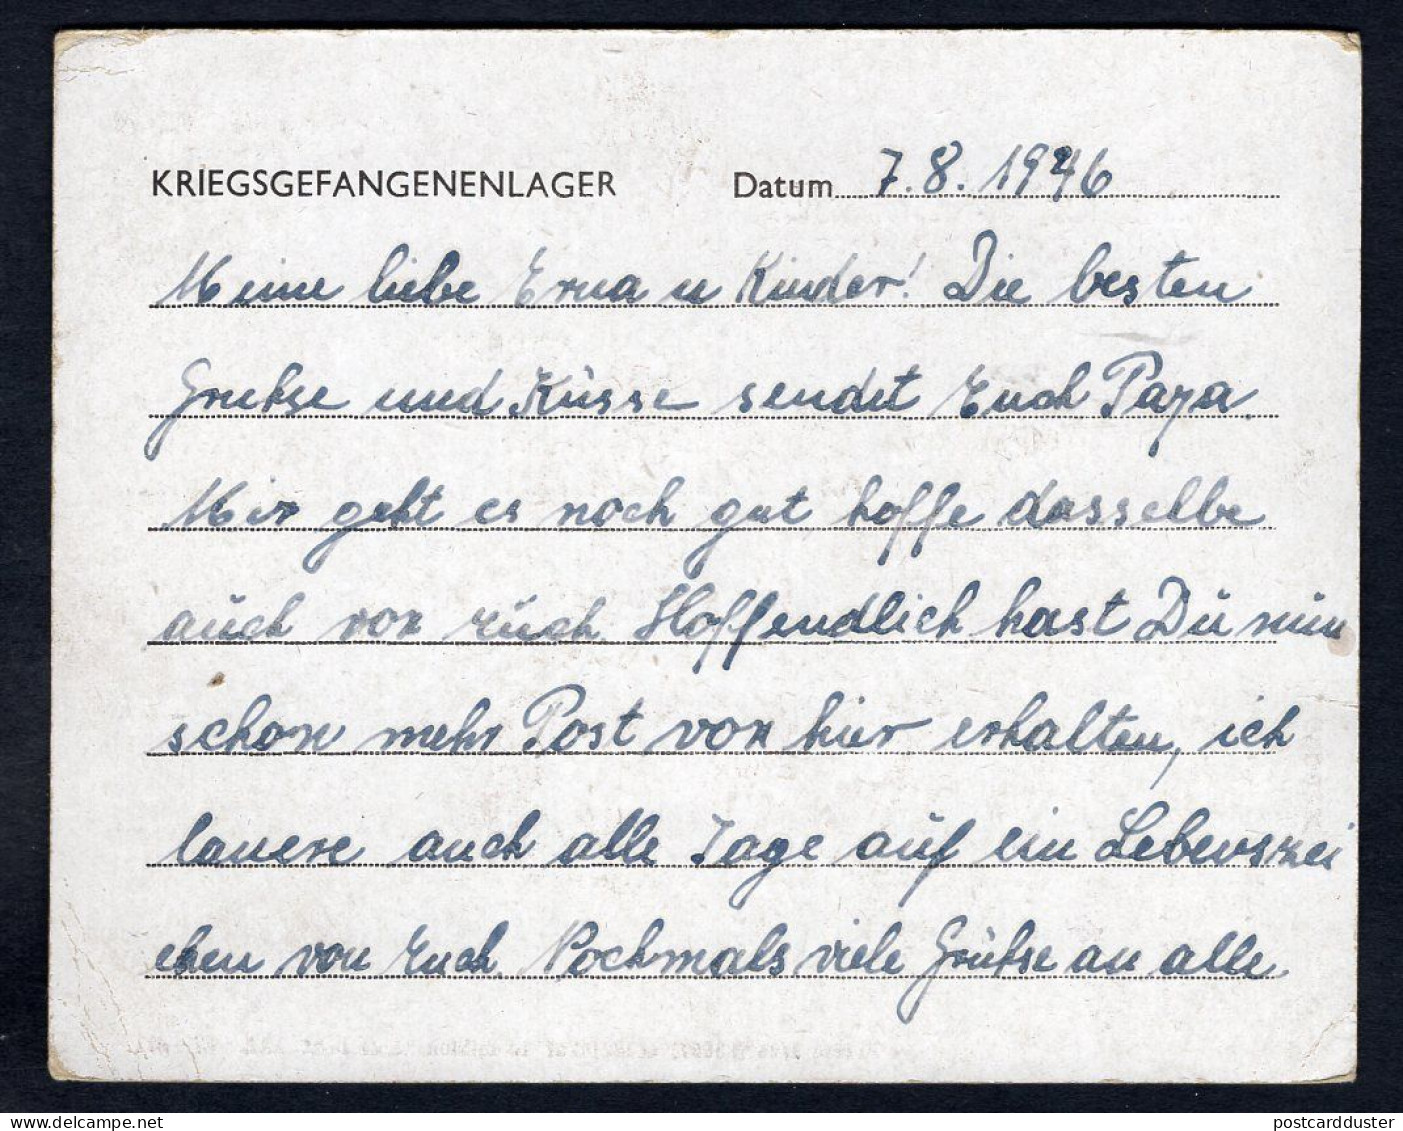 KRIEGSGEFANGENENLAGER Datum 7.8.1946
Meine liebe Erna u Kinder! Die besten
Grüße und Küsse sendet Euch Papa.
Mir geht es noch gut, hoffe dasselbe
auch von euch. Hoffendlich hast Du nun
schon mehr Post von hier erhalten, ich
lauere auch alle Tage auf ein Lebenszei
chen von Euch. Nochmals viele Grüße an alle.
delcampe.net
postcardduster